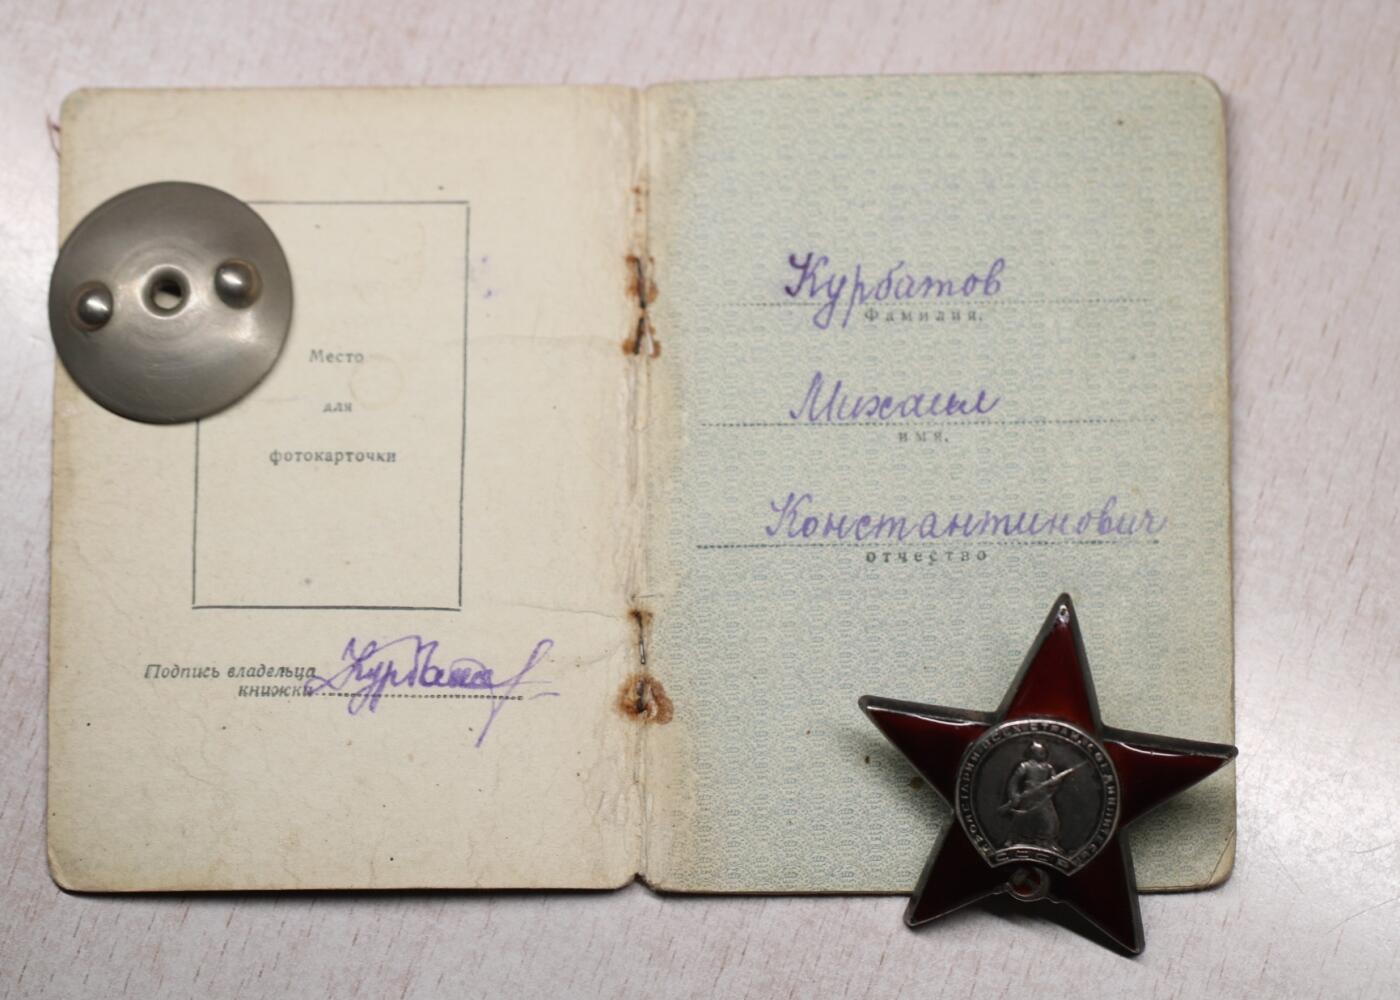 Место
для
фотокарточки
Подпись владельца
книжки
Курбатов
Курбатов
Фамилия.
Михаил
имя.
Константинович
отчество
ПРОЛЕТАРИИ ВСЕХ СТРАН, СОЕДИНЯЙТЕСЬ!
СССР